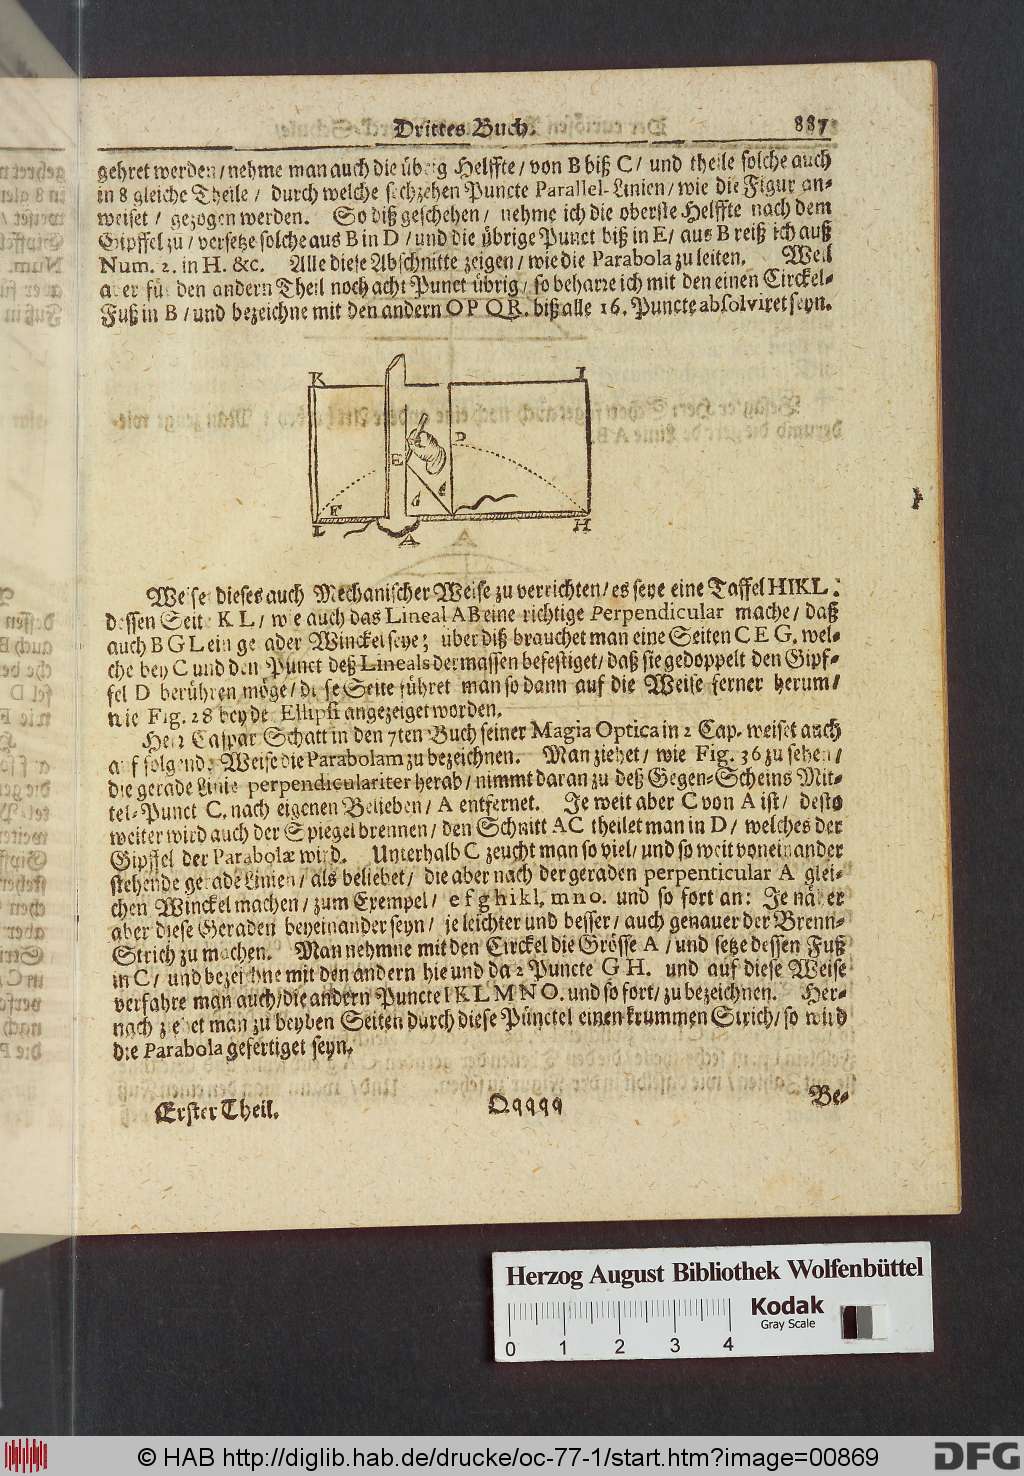 Drittes Buch. 887
gehret werden / nehme man auch die übrig Helffte / von B biß C / und theile solche auch
in 8 gleiche Theile / durch welche sechzehen Puncte Parallel-Linien / wie die Figur an-
weiset / gezogen werden. So diß geschehen / nehme ich die oberste Helffte nach dem
Gipffel zu / versetze solche aus B in D / und die übrige Punct biß in E / aus B reiß ich auß
Num. 2. in H. &c. Alle diese Abschnitte zeigen / wie die Parabola zu leiten. Weil
aber für den andern Theil noch acht Punct übrig / so beharre ich mit den einen Circkel-
Fuß in B / und bezeichne mit den andern O P Q R. biß alle 16. Puncte absolviret seyn.
K I
D
E
F G
L A H
Weise dieses auch Mechanischer Weise zu verrichten / es seye eine Taffel HIKL:
dessen Seite K L / wie auch das Lineal AB eine richtige Perpendicular mache / daß
auch B G L ein gerader Winckel seye; über diß brauchet man eine Seiten C E G. wel-
che bey C und den Punct deß Lineals dermassen befestiget / daß sie gedoppelt den Gipf-
fel D berühren möge / diese Seite führet man so dann auf die Weise ferner herum /
wie Fig. 28 beyde Ellipsi angezeiget worden.
Herr Caspar Schatt in den 7ten Buch seiner Magia Optica in 2 Cap. weiset auch
auf folgende Weise die Parabolam zu bezeichnen. Man ziehet / wie Fig. 36 zu sehen /
die gerade Linie perpendiculariter herab / nimmt daran zu deß Gegen-Scheins Mit-
tel-Punct C. nach eigenen Belieben / A entfernet. Je weit aber C von A ist / desto
weiter wird auch der Spiegel brennen / den Schnitt AC theilet man in D / welches der
Gipffel der Parabolæ wird. Unterhalb C zeucht man so viel / und so weit voneinander
stehende gerade Linien / als beliebet / die aber nach der geraden perpenticular A glei-
chen Winckel machen / zum Exempel / e f g h i k l, m n o. und so fort an: Je näher
aber diese Geraden beyeinander seyn / je leichter und besser / auch genauer der Brenn-
Strich zu machen. Man nehmne mit den Circkel die Grösse A / und setze dessen Fuß
in C / und bezeichne mit den andern hie und da 2 Puncte G H. und auf diese Weise
verfahre man auch / die andern Puncte I K L M N O. und so fort / zu bezeichnen. Her-
nach ziehet man zu beyden Seiten durch diese Pünctel einen krummen Strich / so wird
die Parabola gefertiget seyn.
Erster Theil. Qqqqq Be-
Herzog August Bibliothek Wolfenbüttel
Kodak
Gray Scale
0 1 2 3 4
© HAB http://diglib.hab.de/drucke/oc-77-1/start.htm?image=00869
DFG